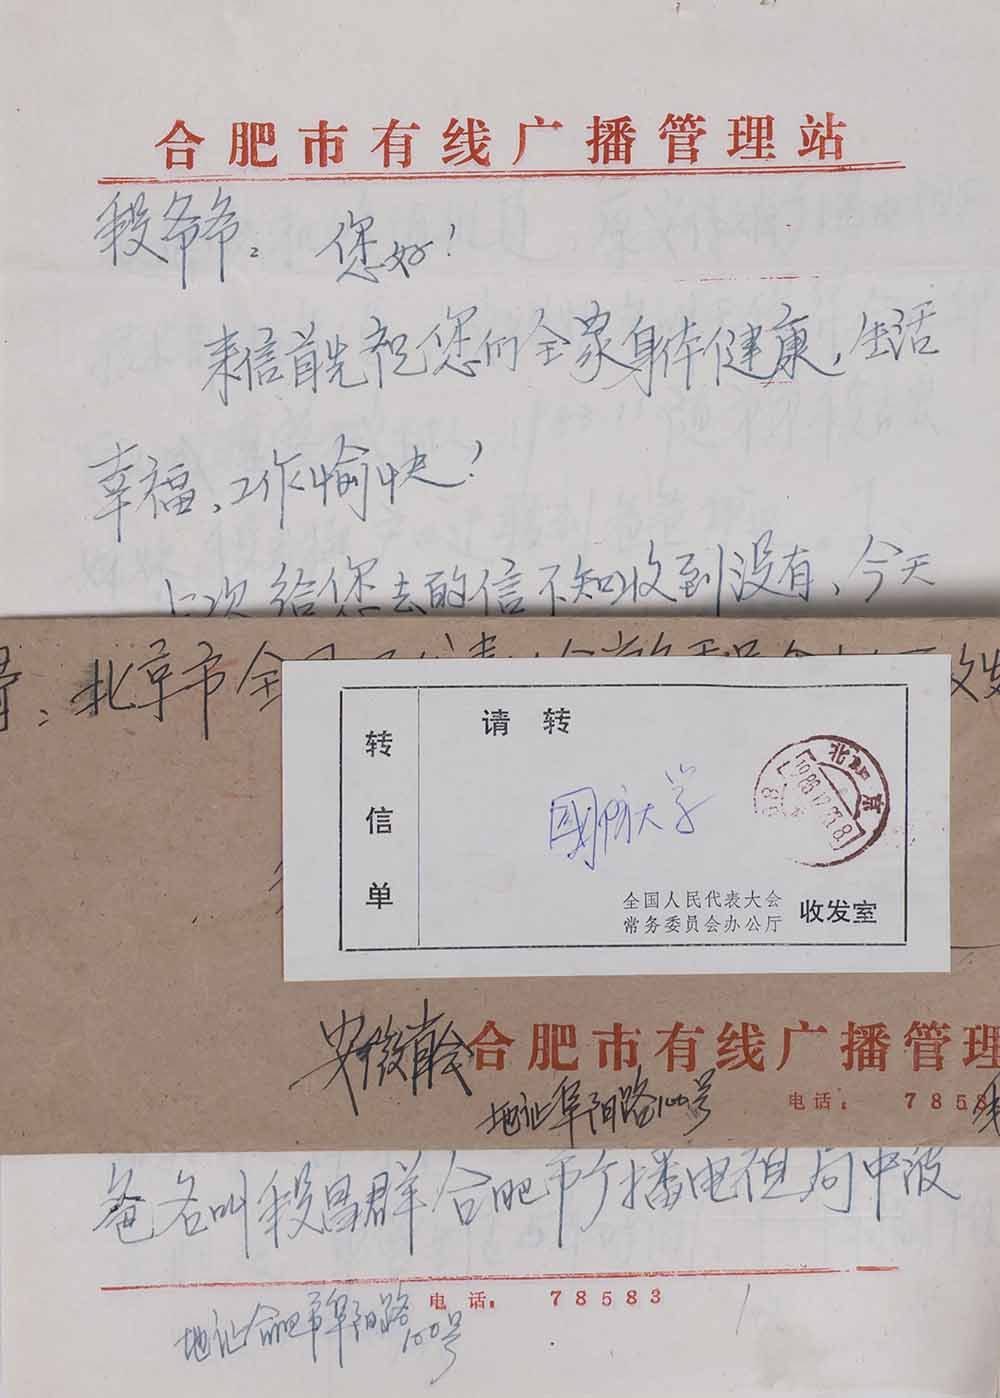 合肥市有线广播管理站
段爷爷：您好！
来信首先祝您们全家身体健康，生活
幸福，工作愉快！
上次给您去的信不知收到没有，今天
北京市全
转信单
请转
國防大学
北京
全国人民代表大会
常务委员会办公厅
收发室
安徽省合肥市有线广播管理
地址阜阳路100号
电话： 7858
爸名叫段昌群合肥市广播电视局中波
电话： 78583
地址合肥市阜阳路
100号